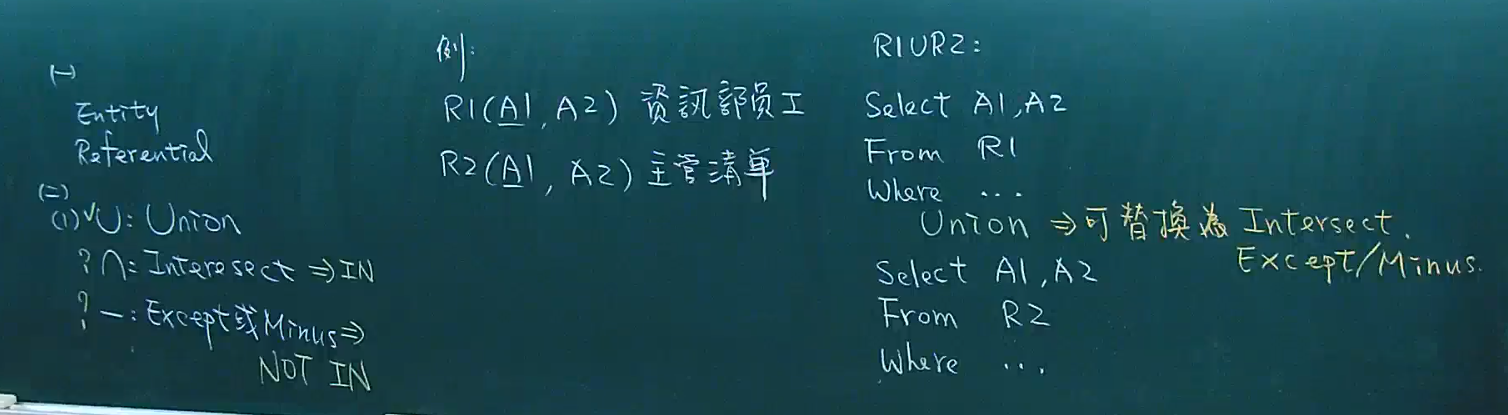 (一)
Entity
Referential
(二)
(1) ✓∪: Union
? ∩: Interesect ⇒ IN
? －: Except或Minus ⇒
NOT IN
例:
R1(A1, A2) 資訊部員工
R2(A1, A2) 主管清單
R1∪R2:
Select A1,A2
From R1
Where ...
Union ⇒ 可替換為 Intersect.
Except/Minus.
Select A1,A2
From R2
Where ...